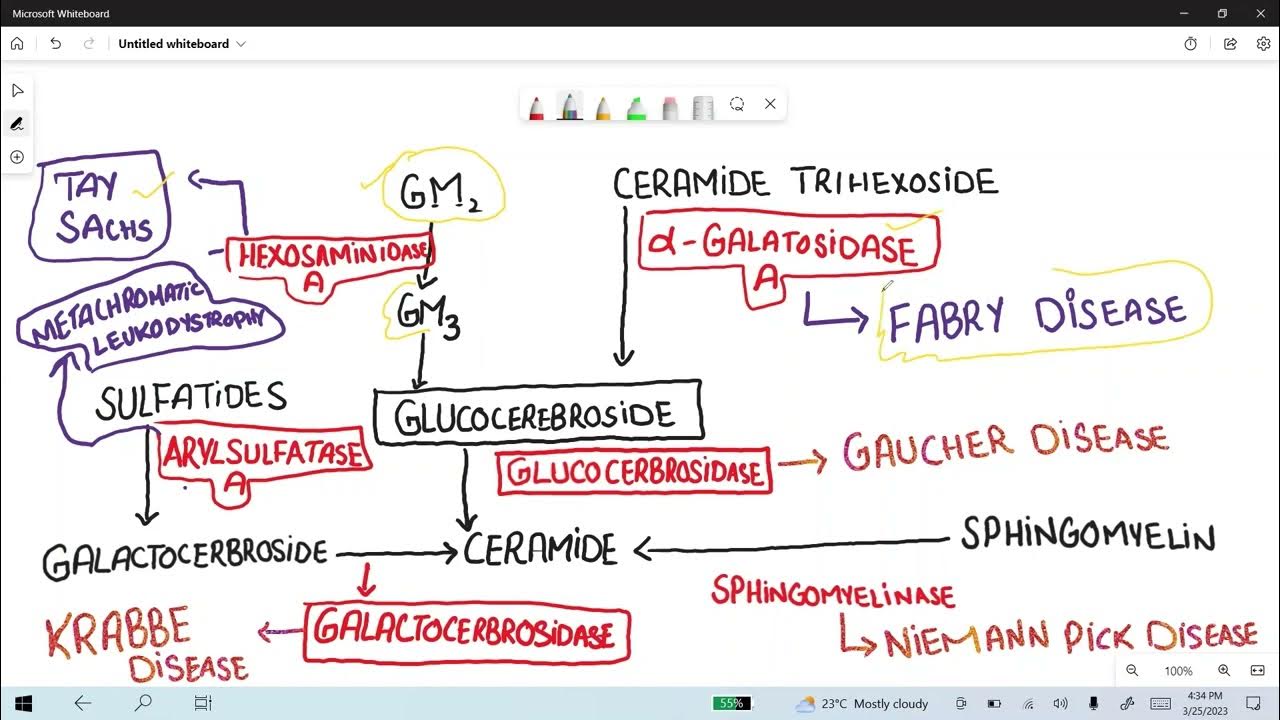 Microsoft Whiteboard
Untitled whiteboard
TAY
SACHS
GM2
CERAMIDE TRIHEXOSIDE
HEXOSAMINIDASE
A
α-GALATOSIDASE
A
METACHROMATIC
LEUKODYSTROPHY
GM3
FABRY DISEASE
SULFATIDES
GLUCOCEREBROSIDE
ARYLSULFATASE
A
GLUCOCERBROSIDASE
GAUCHER DISEASE
GALACTOCERBROSIDE
CERAMIDE
SPHINGOMYELIN
SPHINGOMYELINASE
KRABBE
DISEASE
GALACTOCERBROSIDASE
NIEMANN PICK DISEASE
100%
55%
23°C Mostly cloudy
4:34 PM
3/25/2023